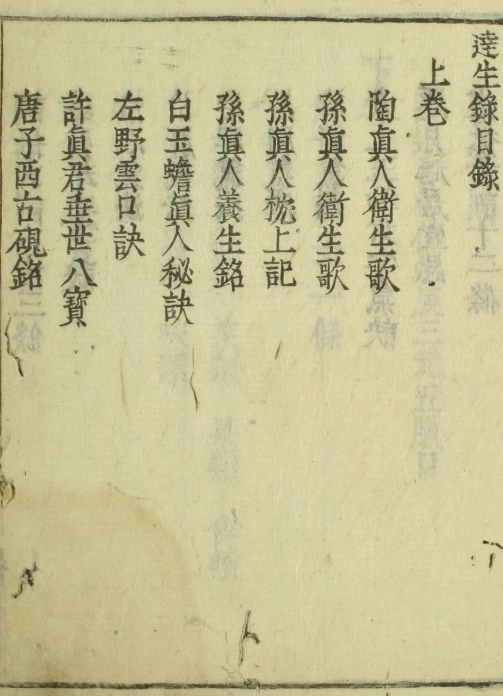 達生錄目錄
上卷
陶眞人衛生歌
孫眞人衛生歌
孫眞人枕上記
孫眞人養生銘
白玉蟾眞人秘訣
左野雲口訣
許眞君垂世八寶
唐子西古硯銘